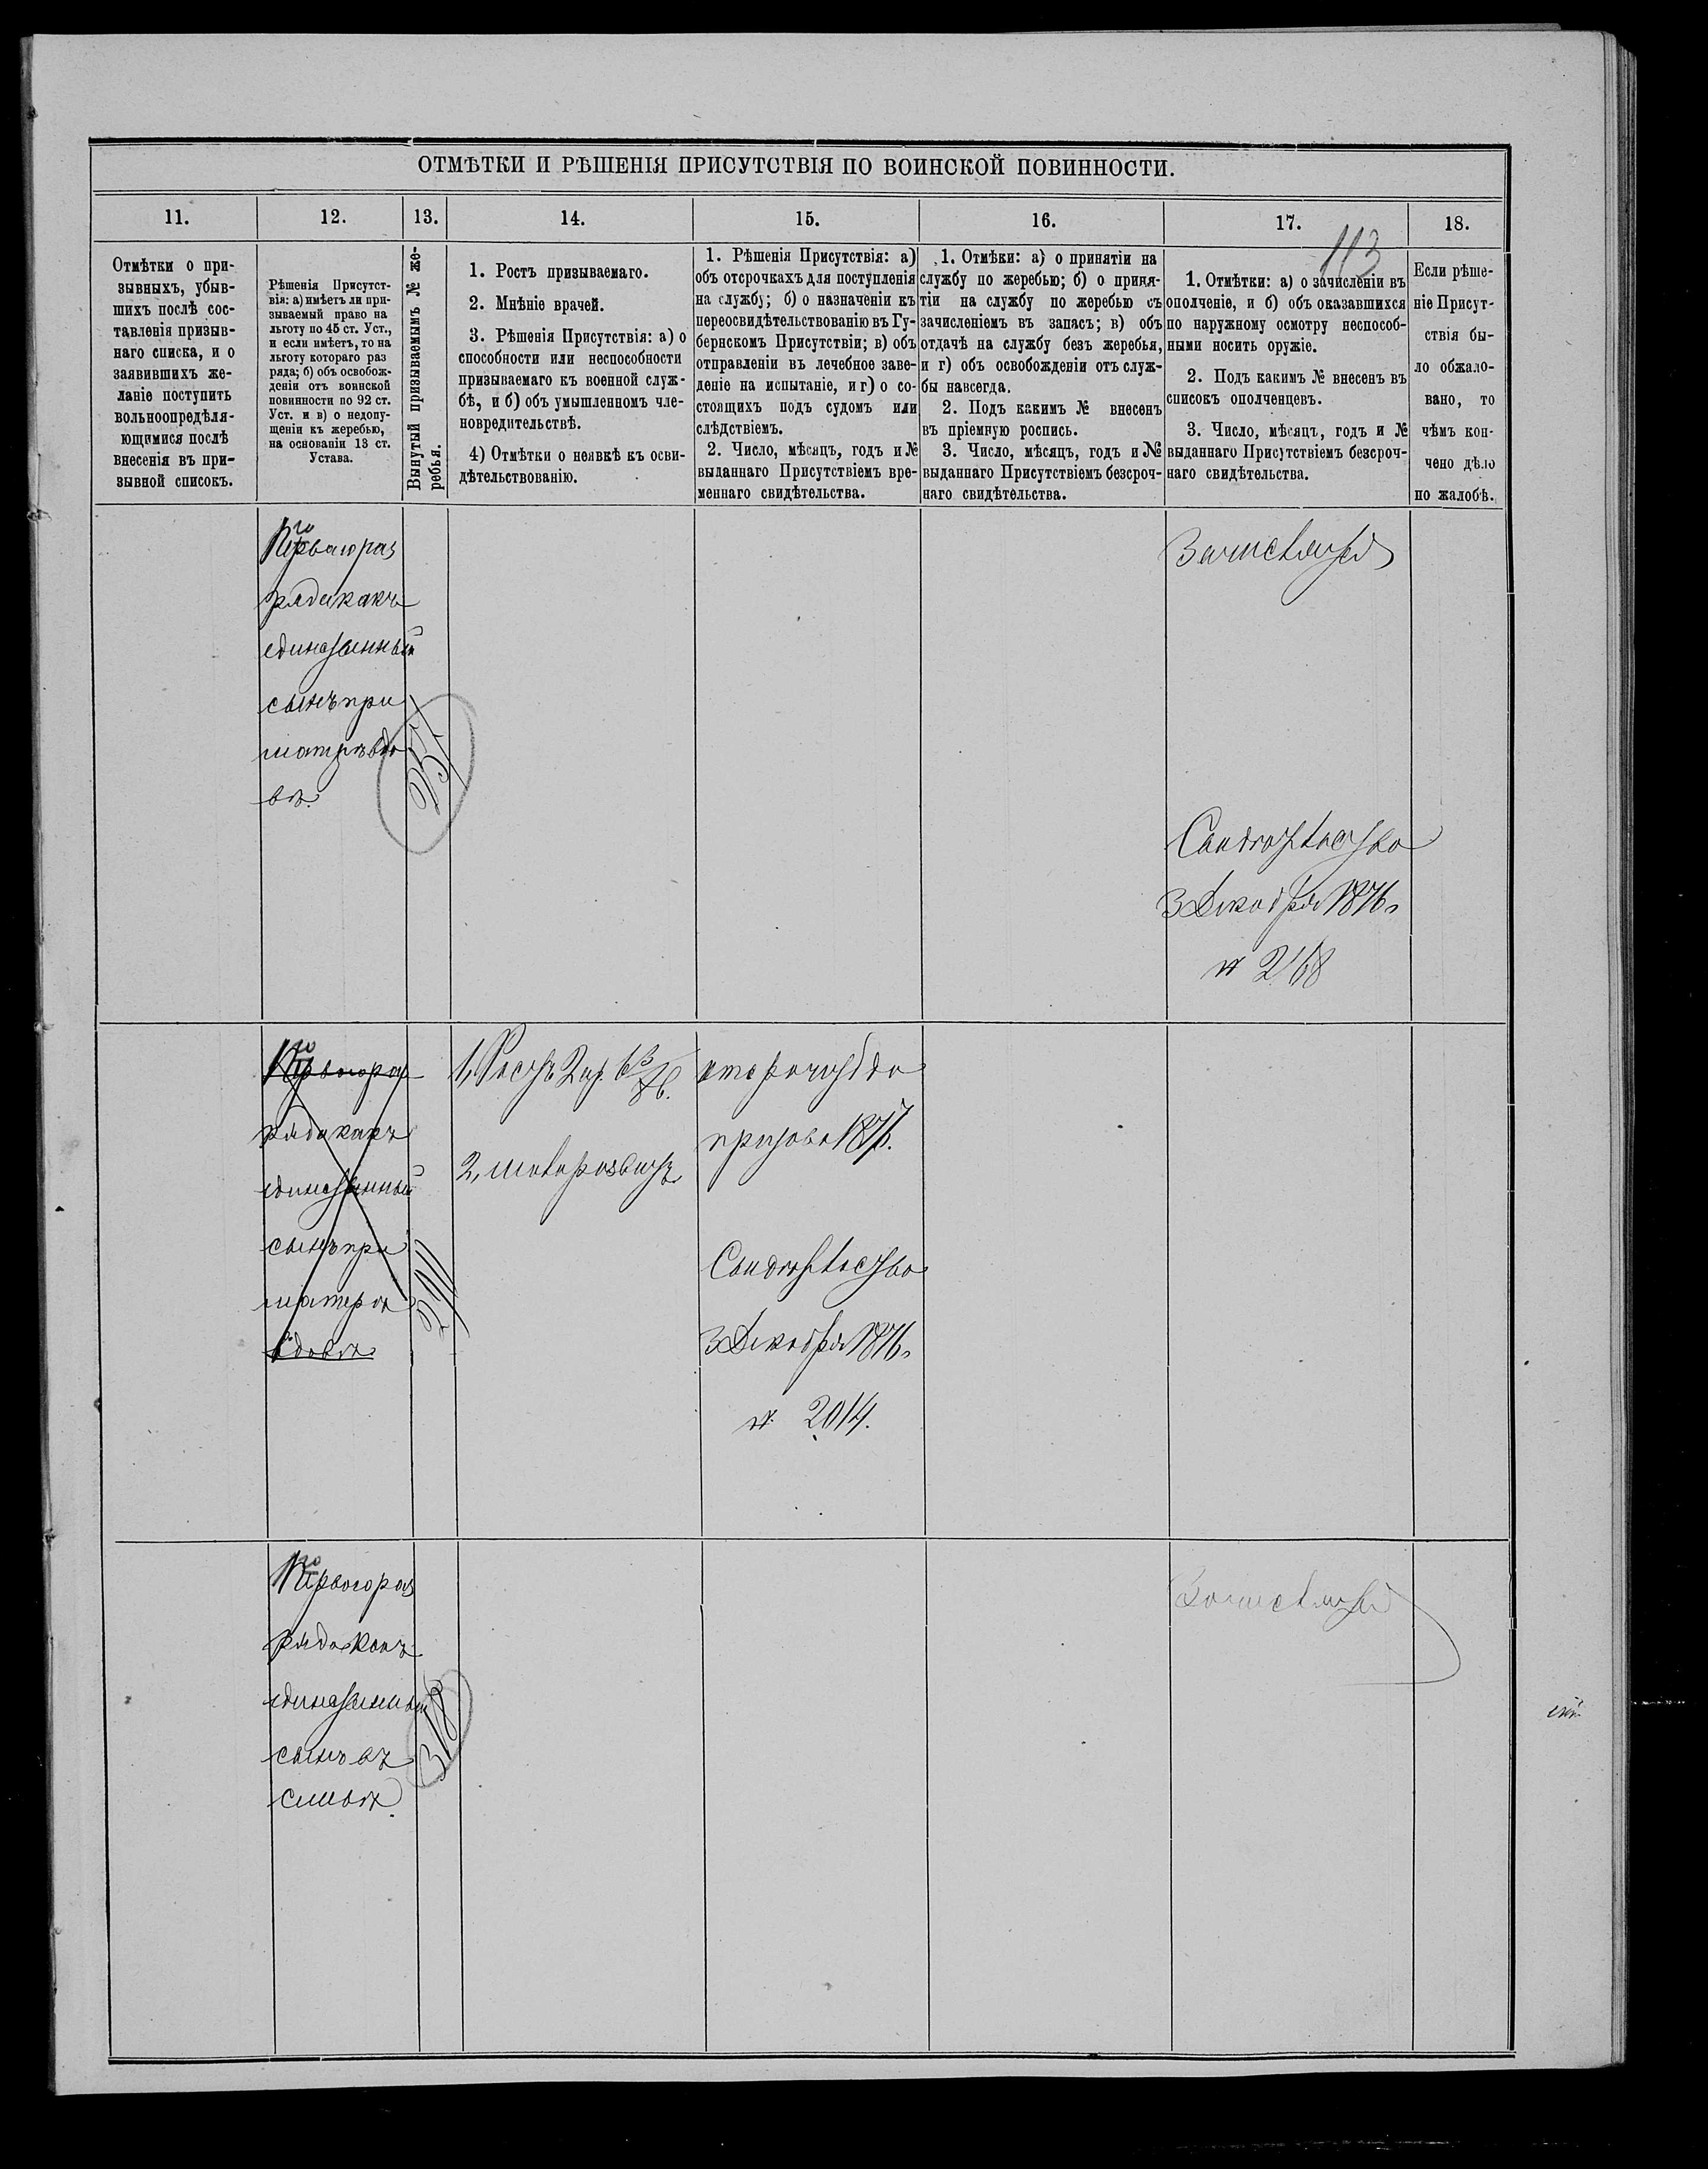 ОТМѢТКИ И РѢШЕНІЯ ПРИСУТСТВІЯ ПО ВОИНСКОЙ ПОВИННОСТИ.
11.
12.
13.
14.
15.
16.
17.
18.
113
Отмѣтки о при-
зывныхъ, убыв-
шихъ послѣ сос-
тавленія призыв-
наго списка, и о
заявившихъ же-
ланіе поступить
вольноопредѣля-
ющимися послѣ
внесенія въ при-
зывной списокъ.
Рѣшенія Присутст-
вія: а) имѣетъ ли при-
зываемый право на
льготу по 45 ст. Уст.,
и если имѣетъ, то на
льготу котораго раз
ряда; б) объ освобож-
деніи отъ воинской
повинности по 92 ст.
Уст. и в) о недопу-
щеніи къ жеребью,
на основаніи 13 ст.
Устава.
Вынутый призываемымъ № же-
ребья.
1. Ростъ призываемаго.
2. Мнѣніе врачей.
3. Рѣшенія Присутствія: а) о
способности или неспособности
призываемаго къ военной служ-
бѣ, и б) объ умышленномъ чле-
новредительствѣ.
4) Отмѣтки о неявкѣ къ осви-
дѣтельствованію.
1. Рѣшенія Присутствія: а)
объ отсрочкахъ для поступленія
на службу; б) о назначеніи къ
переосвидѣтельствованію въ Гу-
бернскомъ Присутствіи; в) объ
отправленіи въ лечебное заве-
деніе на испытаніе, и г) о со-
стоящихъ подъ судомъ или
слѣдствіемъ.
2. Число, мѣсяцъ, годъ и №
выданнаго Присутствіемъ вре-
меннаго свидѣтельства.
1. Отмѣки: а) о принятіи на
службу по жеребью; б) о приня-
тіи на службу по жеребью съ
зачисленіемъ въ запасъ; в) объ
отдачѣ на службу безъ жеребья,
и г) объ освобожденіи отъ служ-
бы навсегда.
2. Подъ какимъ № внесенъ
въ пріемную роспись.
3. Число, мѣсяцъ, годъ и №
выданнаго Присутствіемъ безсроч-
наго свидѣтельства.
1. Отмѣтки: а) о зачисленіи въ
ополченіе, и б) объ оказавшихся
по наружному осмотру неспособ-
ными носить оружіе.
2. Подъ какимъ № внесенъ въ
списокъ ополченцевъ.
3. Число, мѣсяцъ, годъ и №
выданнаго Присутствіемъ безсроч-
наго свидѣтельства.
Если рѣше-
ніе Присут-
ствія бы-
ло обжало-
вано, то
чѣмъ кон-
чено дѣло
по жалобѣ.
Перваго раз
ряда какъ
единственный
сынъ при
матери вдо
вѣ.
Зачислить
Свидѣтельство
3 Декабря 1876 г
№ 2168
Перваго раз
ряда какъ
единственный
сынъ при
матери
вдовѣ
1, Ростъ 2 ар.
2,
отсрочить до
призыва 1877.
Свидѣтельство
3 Декабря 1876 г
№ 2014.
Перваго раз
ряда какъ
единственный
сынъ въ
семьѣ.
318
Зачислить